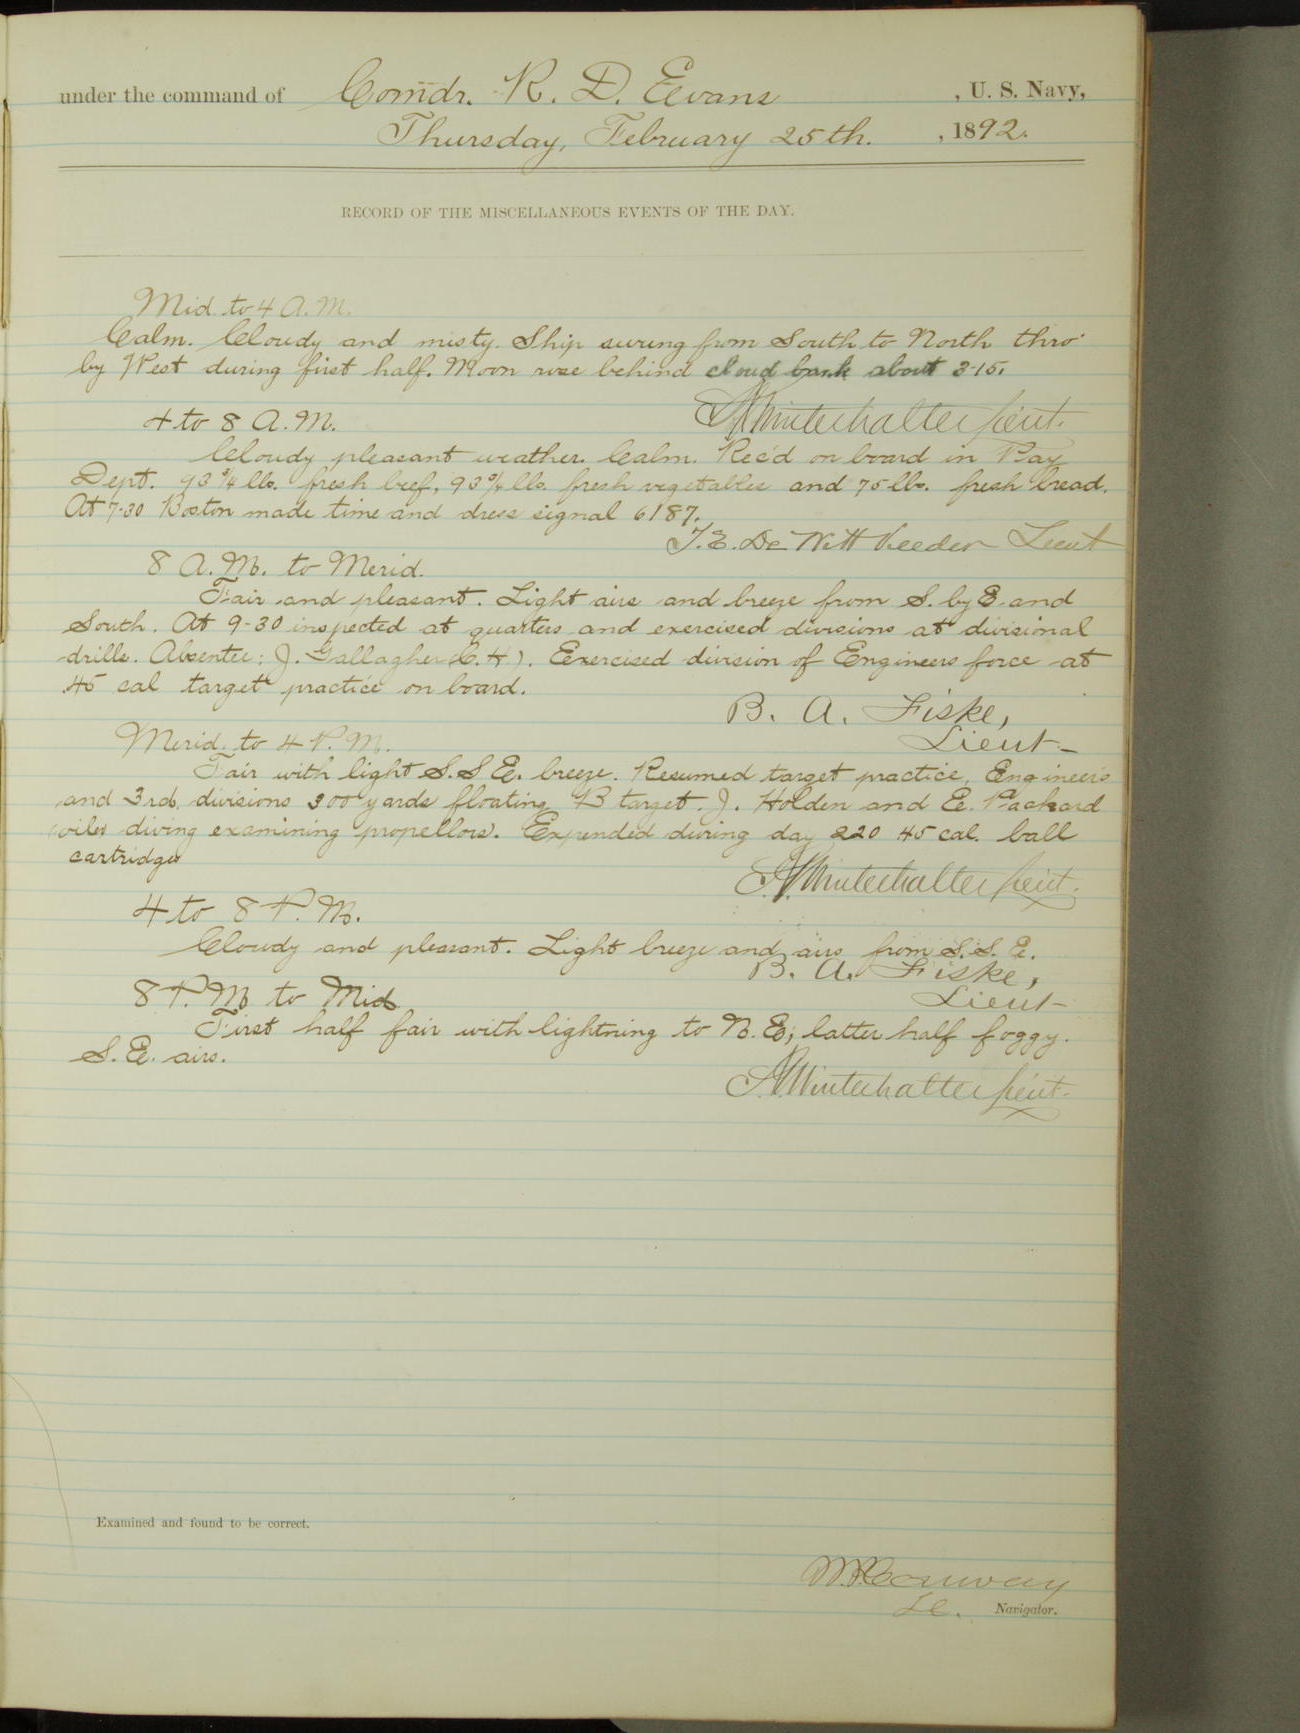 under the command of Comdr. R. D. Evans, U. S. Navy,
Thursday, February 25th. , 1892.
RECORD OF THE MISCELLANEOUS EVENTS OF THE DAY.
Mid. to 4 A.M.
Calm. Cloudy and misty. Ship swung from South to North thro'
by West during first half. Moon rose behind cloud bank about 3-15.
Winterhalter Lieut.
4 to 8 A.M.
Cloudy pleasant weather. Calm. Rec'd on board in Pay
Dept. 93 3/4 lbs. fresh beef, 93 3/4 lbs. fresh vegetables and 75 lbs. fresh bread.
At 7-30 Boston made time and dress signal 6187.
T. E. De Witt Veeder Lieut
8 A.M. to Merid.
Fair and pleasant. Light airs and breeze from S. by E. and
South. At 9-30 inspected at quarters and exercised divisions at divisional
drills. Absentee: J. Gallagher. Exercised division of Engineers force at
45 cal target practice on board.
B. A. Fiske,
Lieut-
Merid. to 4 P.M.
Fair with light S.S.E. breeze. Resumed target practice, Engineers
and 3rd. divisions 300 yards floating B target. J. Holden and E. Packard
diving examining propellors. Expended during day 220 45 cal. ball
cartridges
Winterhalter Lieut.
4 to 8 P.M.
Cloudy and pleasant. Light breeze and airs from S.S.E.
B. A. Fiske,
Lieut-
8 P.M to Mid
First half fair with lightning to N.E; latter half foggy.
S.E. airs.
Winterhalter Lieut.
Examined and found to be correct.
Conway
Navigator.